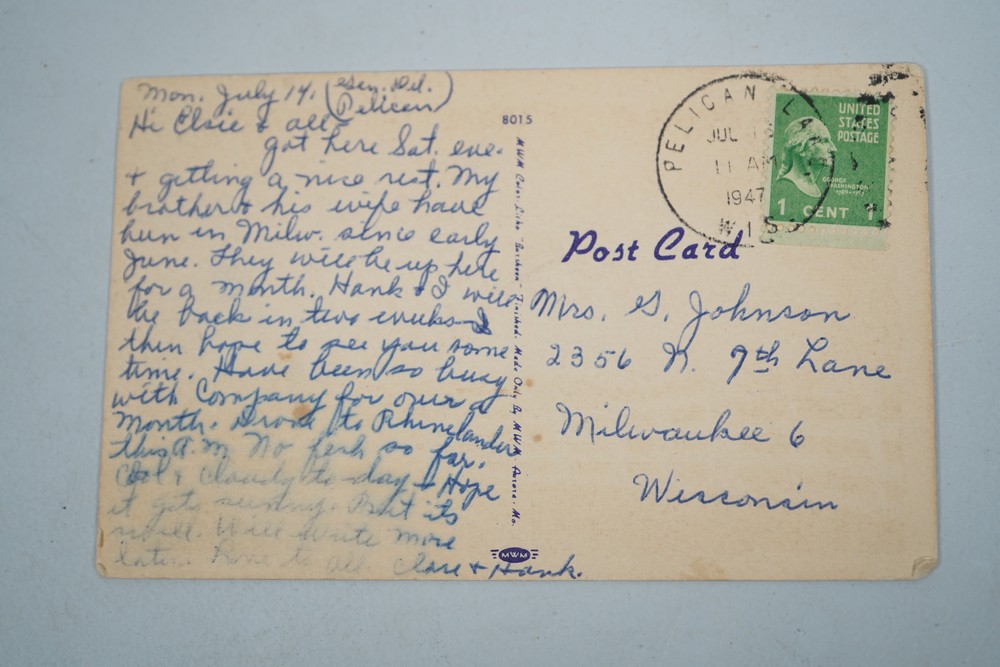 Mon. July 14. (Gen. Del. Pelican)
Hi Elsie & all
got here Sat. eve.
+ getting a nice rest. My
brother & his wife have
been in Milw. since early
June. They will be up here
for a month. Hank & I will
be back in two weeks
then hope to see you some
time. Have been so busy
with Company for over a
Month. Drove to Rhinelander
this A.M. No fish so far.
Cool & cloudy to-day + Hope
it gets sunny. But its
swell. Will write more
later. Love to all. Clare + Hank.
8015
MWM Color-Litho "Finished. Made Only By MWM Aurora, Mo.
MWM
PELICAN LA
JUL
11 AM
1947
WIS
UNITED
STATES
POSTAGE
GEORGE
WASHINGTON
1789-1797
1 CENT 1
Post Card
Mrs. G. Johnson
2356 N. 7th Lane
Milwaukee 6
Wisconsin